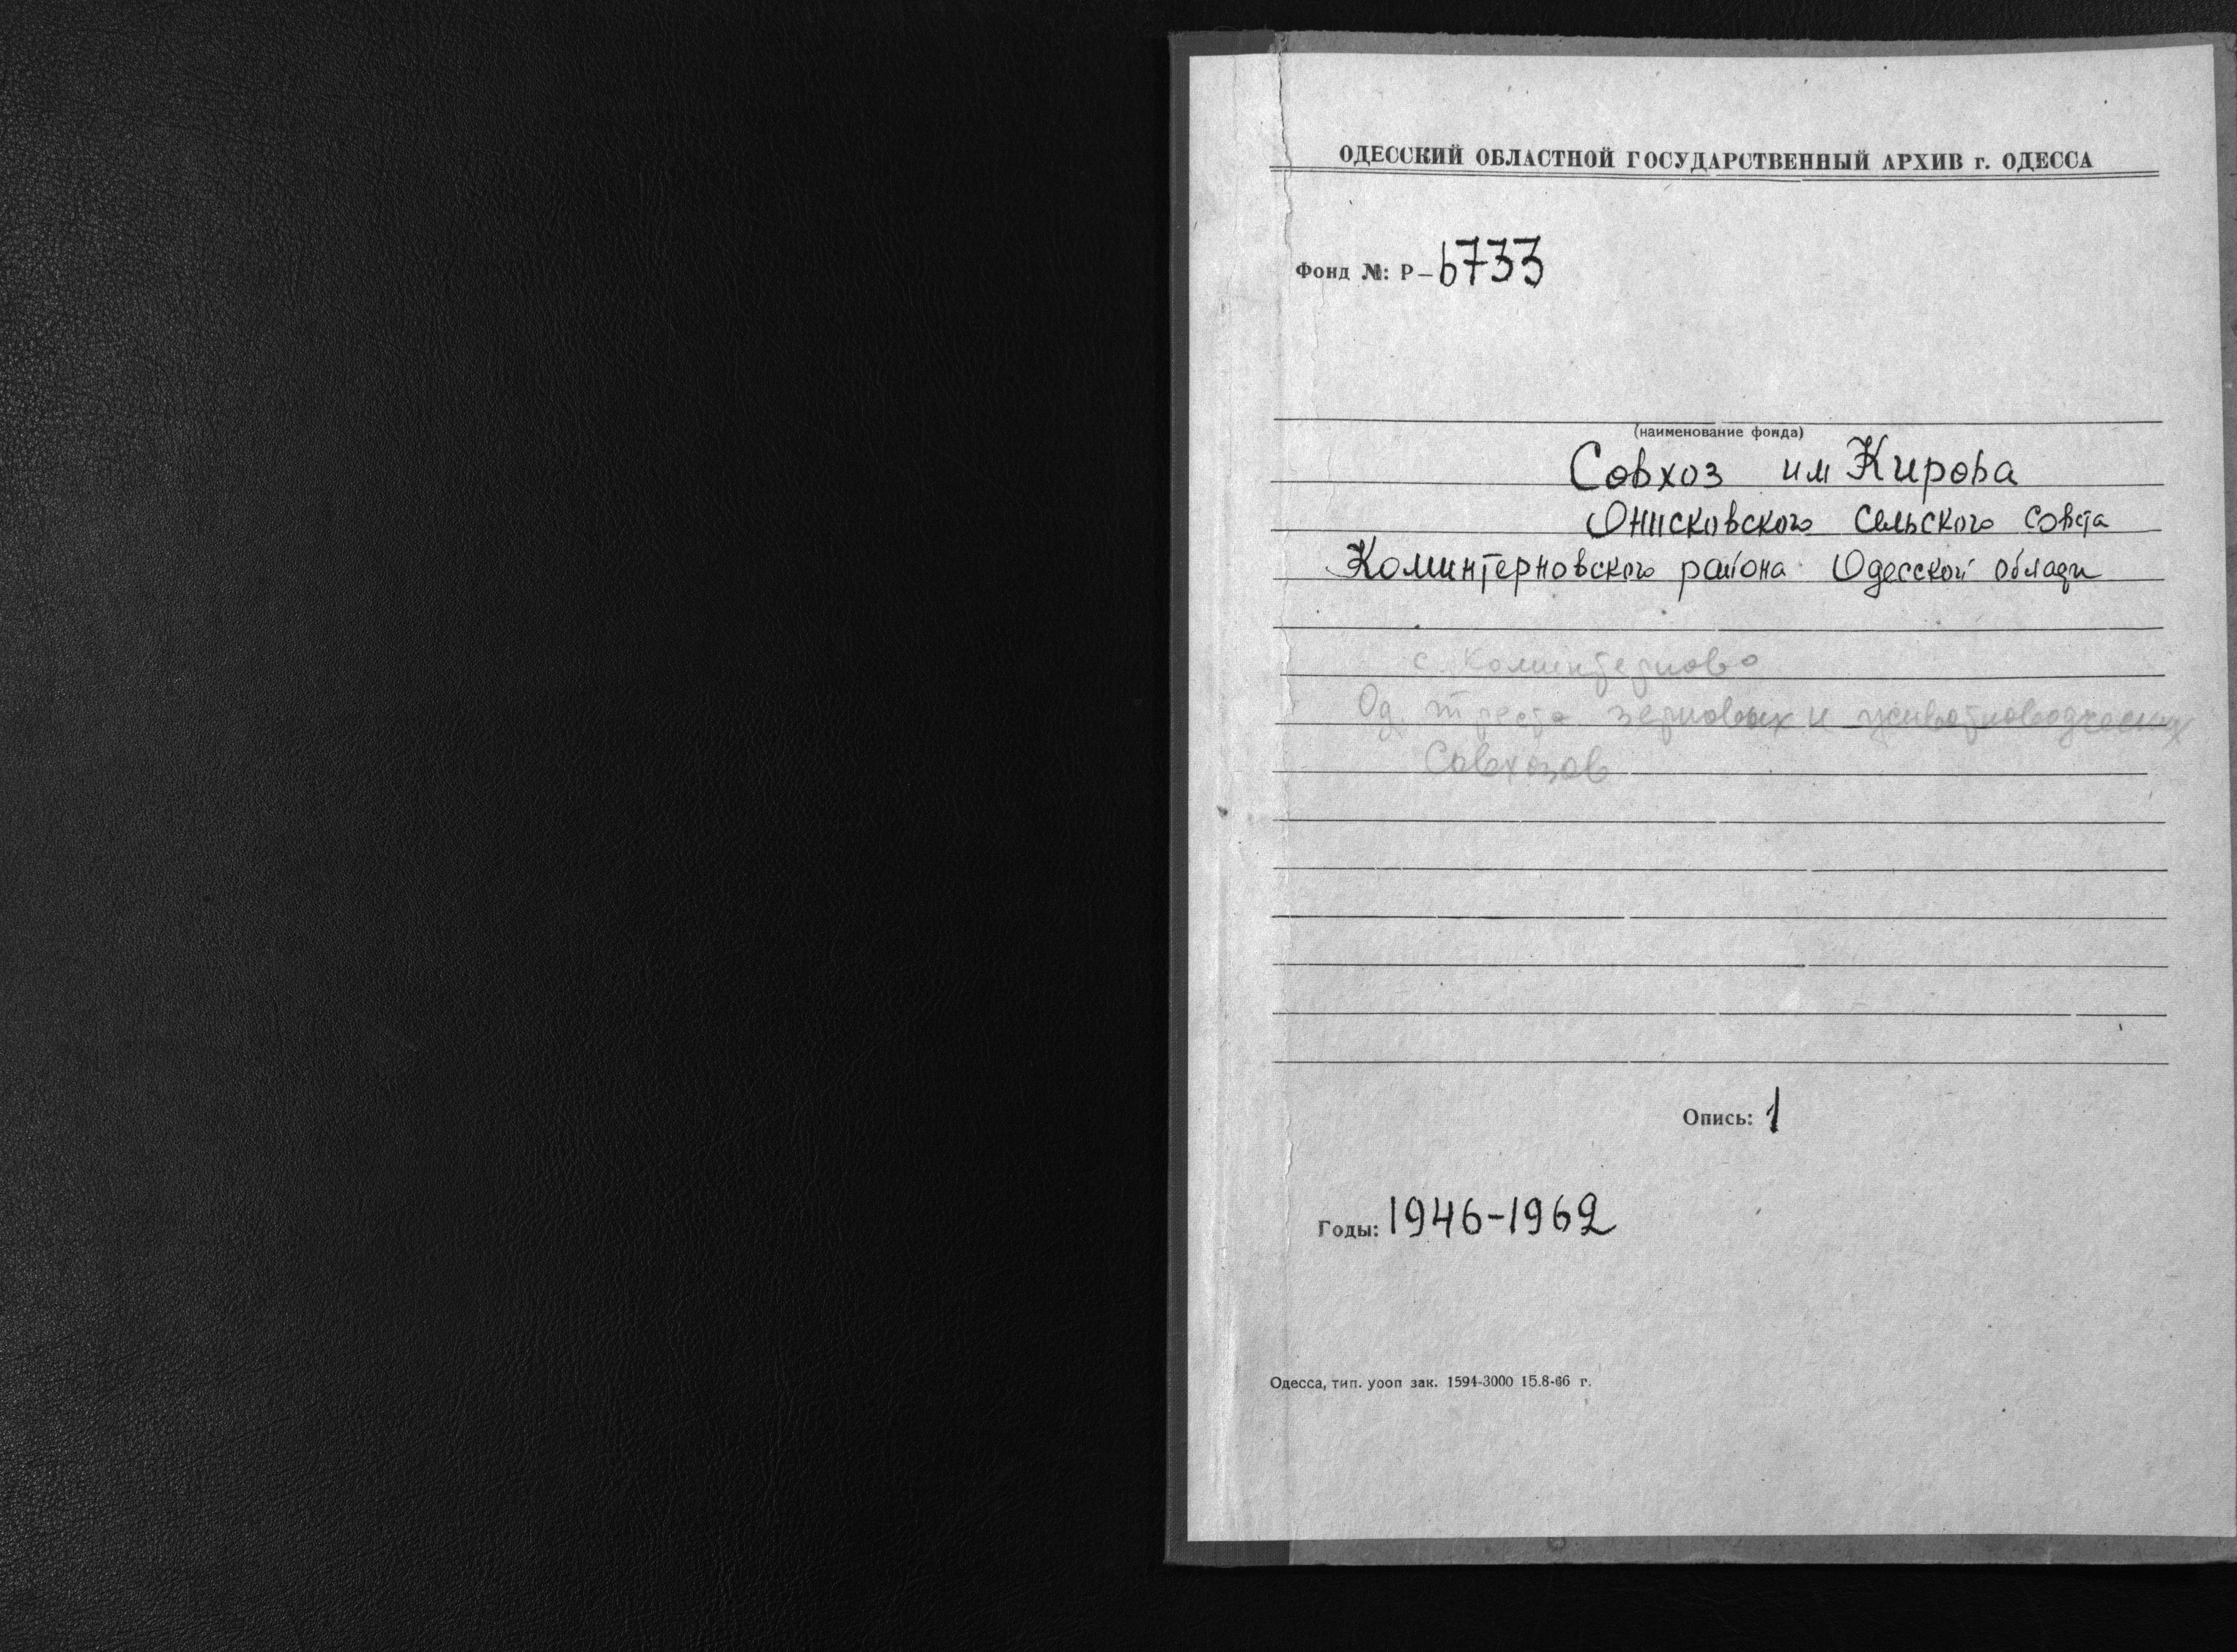 ОДЕССКИЙ ОБЛАСТНОЙ ГОСУДАРСТВЕННЫЙ АРХИВ г. ОДЕССА
Фонд №: Р-6733
(наименование фонда)
Совхоз им Кирова
Онисковского Сельского Совета
Коминтерновского района Одесской области
с. Коминтерново
Од. треста зерновых и животноводческих
Совхозов
Опись: 1
Годы: 1946-1962
Одесса, тип. уооп зак. 1594-3000 15.8-66 г.